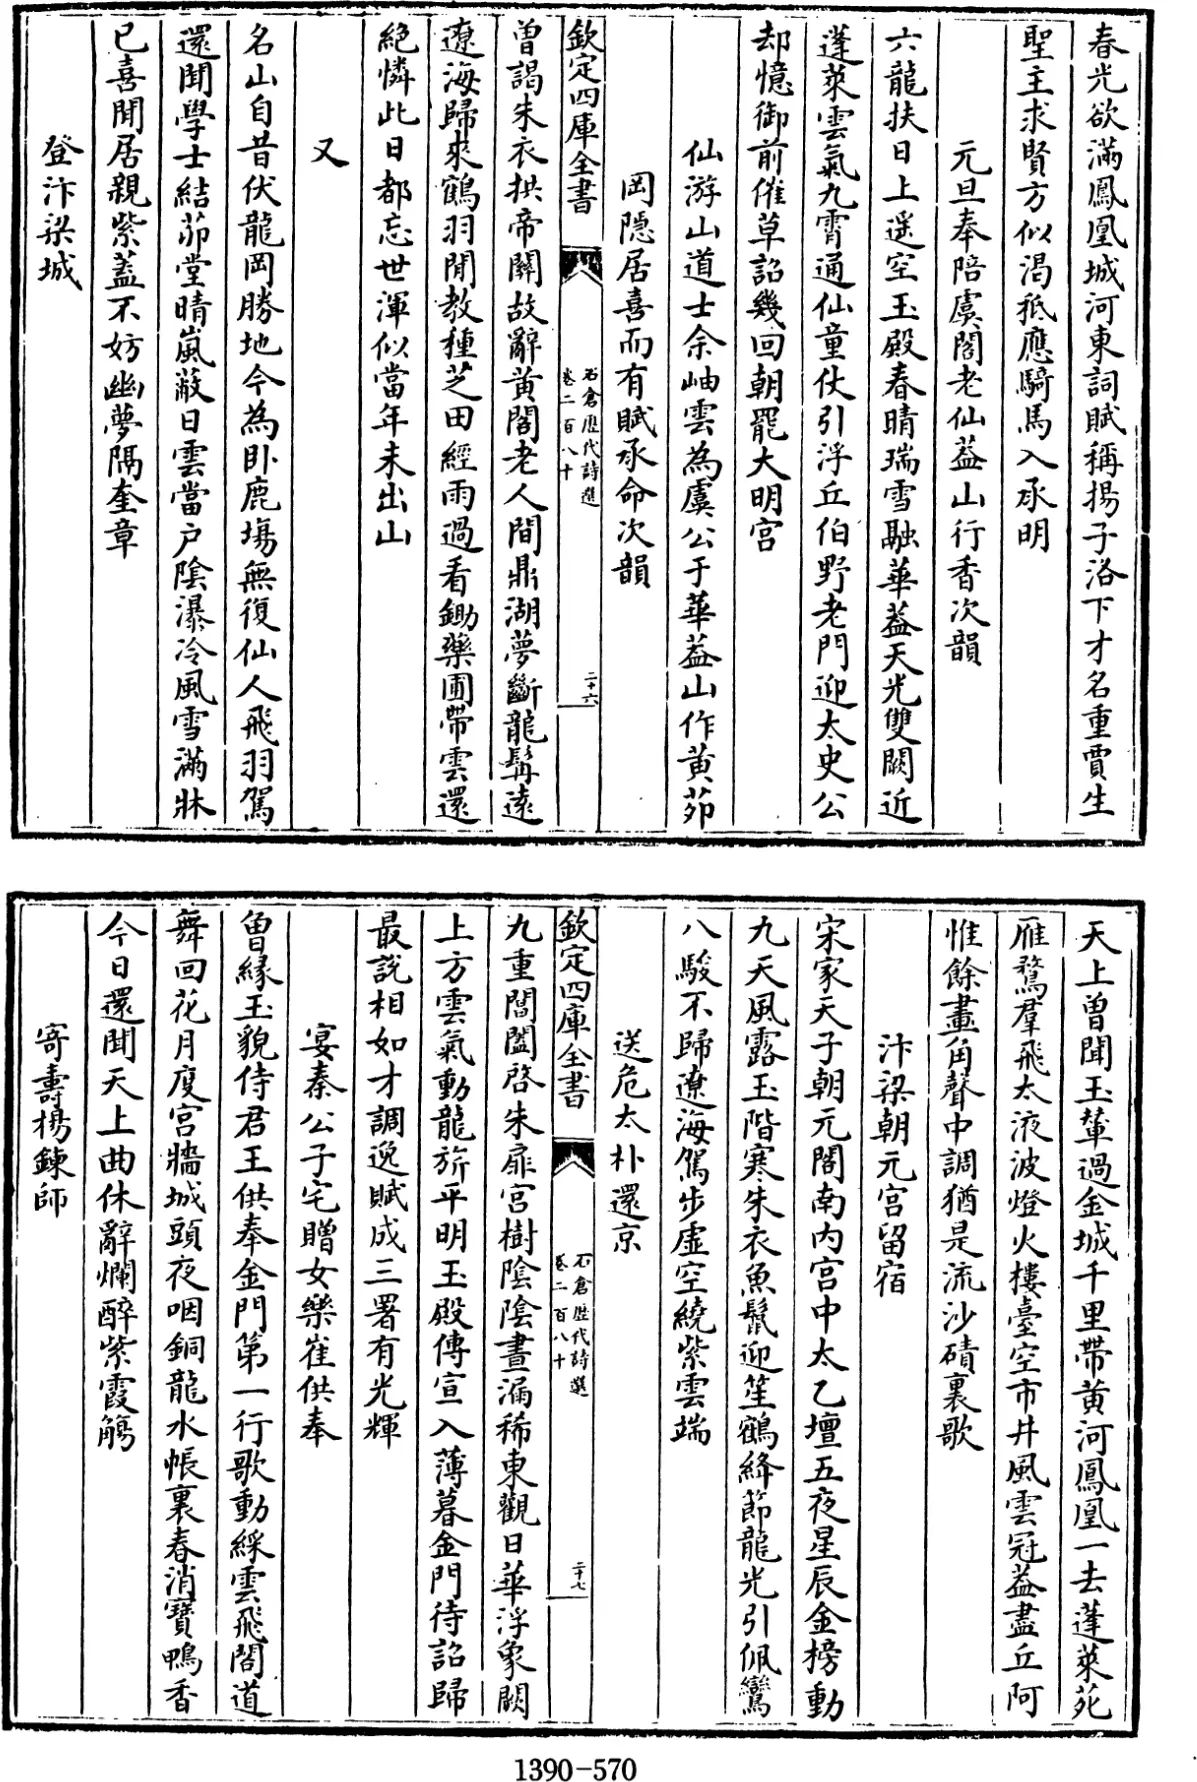 春光欲滿鳳凰城河東詞賦稱揚子洛下才名重賈生
聖主求賢方似渴秪應騎馬入承明
元旦奉陪虞閣老仙葢山行香次韻
六龍扶日上遥空玉殿春晴瑞雪融華葢天光雙闕近
蓬萊雲氣九霄通仙童仗引浮丘伯野老門迎太史公
却憶御前催草詔幾回朝罷大明宫
仙游山道士余岫雲為虞公于華葢山作黄茆
岡隱居喜而有賦承命次韻
欽定四庫全書
石倉歷代詩選
卷二百八十
二十六
曽謁朱衣拱帝闗故辭黄閣老人間鼎湖夢斷龍髯逺
遼海歸來鶴羽閒教種芝田經雨過看鋤藥圃帶雲還
絶憐此日都忘世渾似當年未出山
又
名山自昔伏龍岡勝地今為卧鹿塲無復仙人飛羽駕
還聞學士結茆堂晴嵐蔽日雲當户隂瀑冷風雪滿牀
已喜閒居親紫蓋不妨幽夢隔奎章
登汴梁城
天上曽聞玉輦過金城千里帶黄河鳳凰一去蓬萊苑
雁鶩羣飛太液波燈火樓臺空市井風雲冠葢盡丘阿
惟餘畫角聲中調猶是流沙磧裏歌
汴梁朝元宫留宿
宋家天子朝元閣南内宫中太乙壇五夜星辰金榜動
九天風露玉階寒朱衣魚鬛迎笙鶴絳節龍光引佩鸞
八駿不歸遼海駕步虚空繞紫雲端
送危太朴還京
欽定四庫全書
石倉歷代詩選
卷二百八十
二十七
九重閶闔啓朱扉宫樹隂隂晝漏稀東觀日華浮象闕
上方雲氣動龍旂平明玉殿傳宣入薄暮金門待詔歸
最説相如才調逸賦成三署有光輝
宴秦公子宅贈女樂崔供奉
曽緣玉貌侍君王供奉金門第一行歌動綵雲飛閣道
舞回花月度宫牆城頭夜咽銅龍水帳裏春消寶鴨香
今日還聞天上曲休辭爛醉紫霞觴
寄壽楊鍊師
1390-570